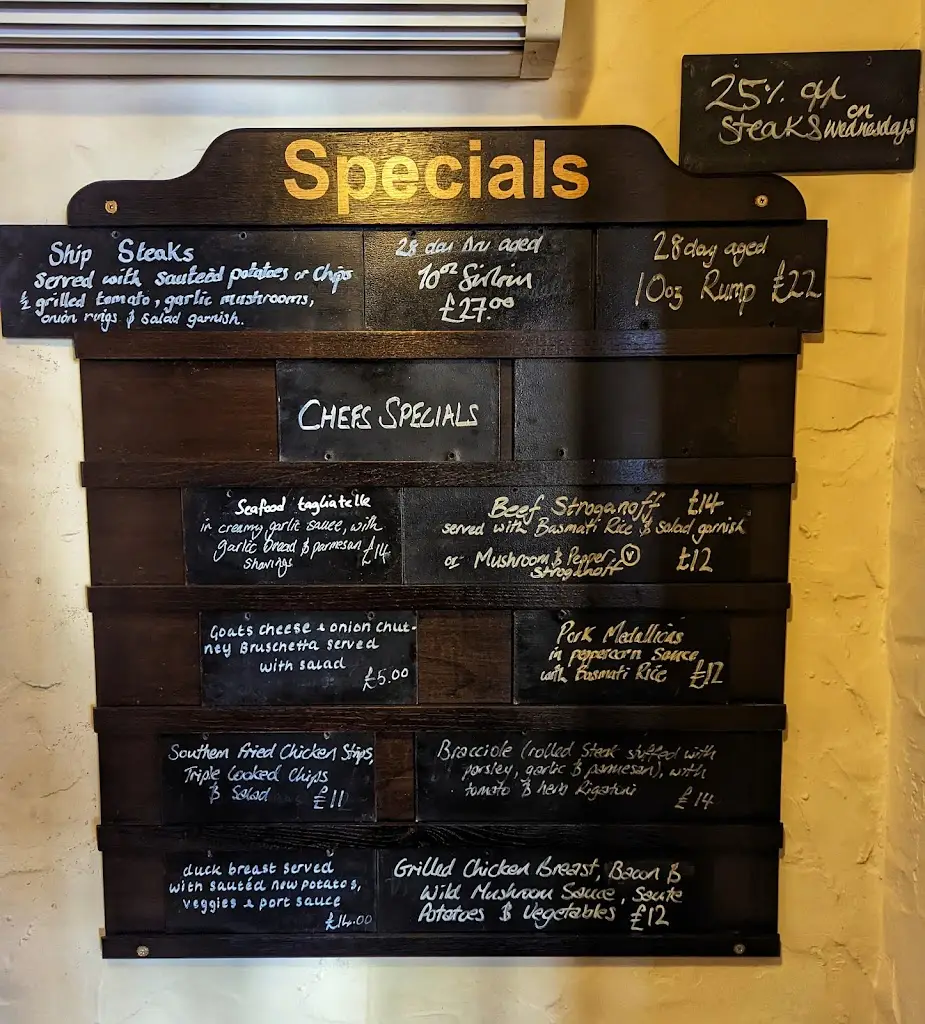 25% off
on
Steaks Wednesdays
Specials
Ship Steaks
Served with sauteed potatoes or chips
½ grilled tomato, garlic mushrooms,
onion rings & salad garnish.
28 day dry aged
10oz Sirloin
£27.00
28 day aged
10oz Rump £22
CHEFS SPECIALS
Seafood tagliatelle
in creamy garlic sauce, with
garlic bread & parmesan £14
shavings
Beef Stroganoff £14
served with Basmati Rice & salad garnish
or Mushroom & Pepper (V) £12
Stroganoff
Goats cheese & onion chut-
ney Bruschetta served
with salad
£5.00
Pork Medallions
in peppercorn sauce
with Basmati Rice £12
Southern Fried Chicken Strips,
Triple Cooked Chips
& Salad £11
Bracciole (rolled steak stuffed with
parsley, garlic & parmesan), with
tomato & herb Rigatoni
£14
duck breast served
with sauted new potatoes,
veggies & port sauce
£14.00
Grilled Chicken Breast, Bacon &
Wild Mushroom Sauce, Saute
Potatoes & Vegetables £12